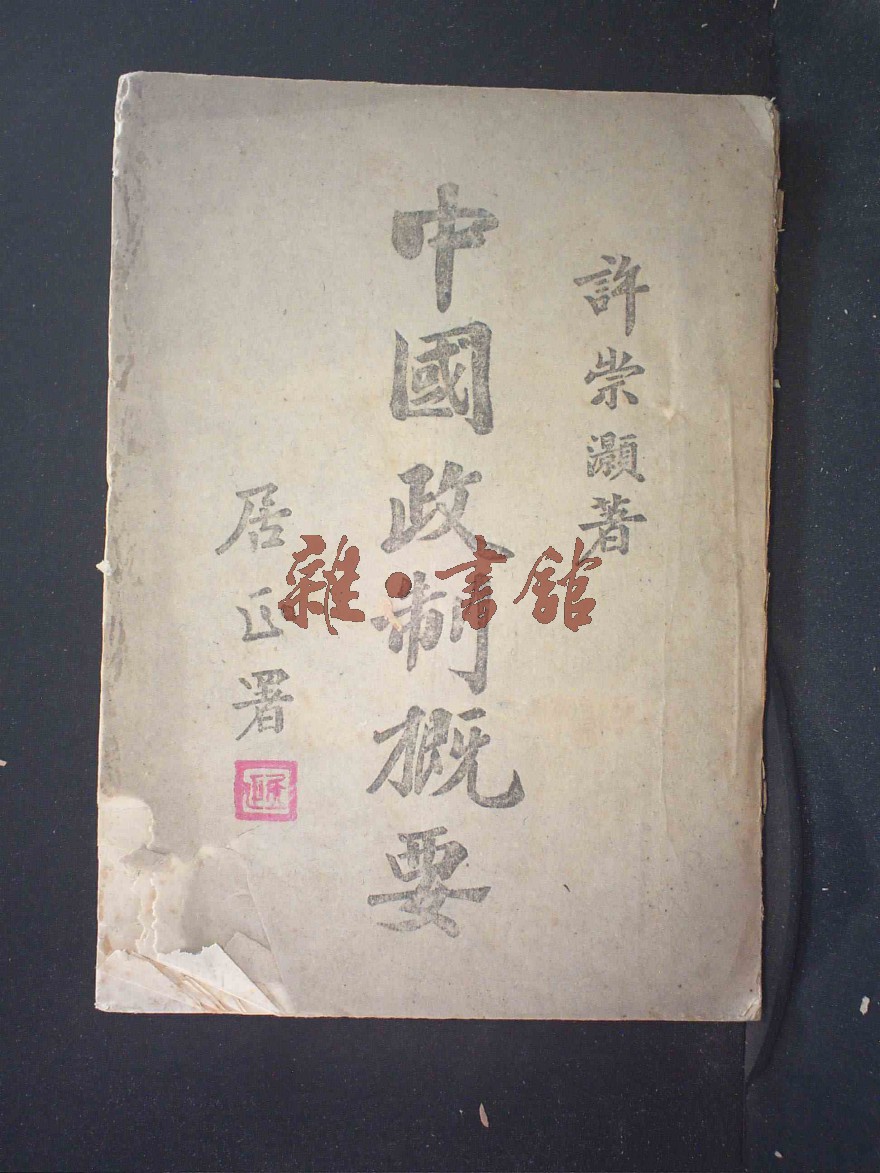 許崇灝著
中國政制概要
居正署
雜·書館